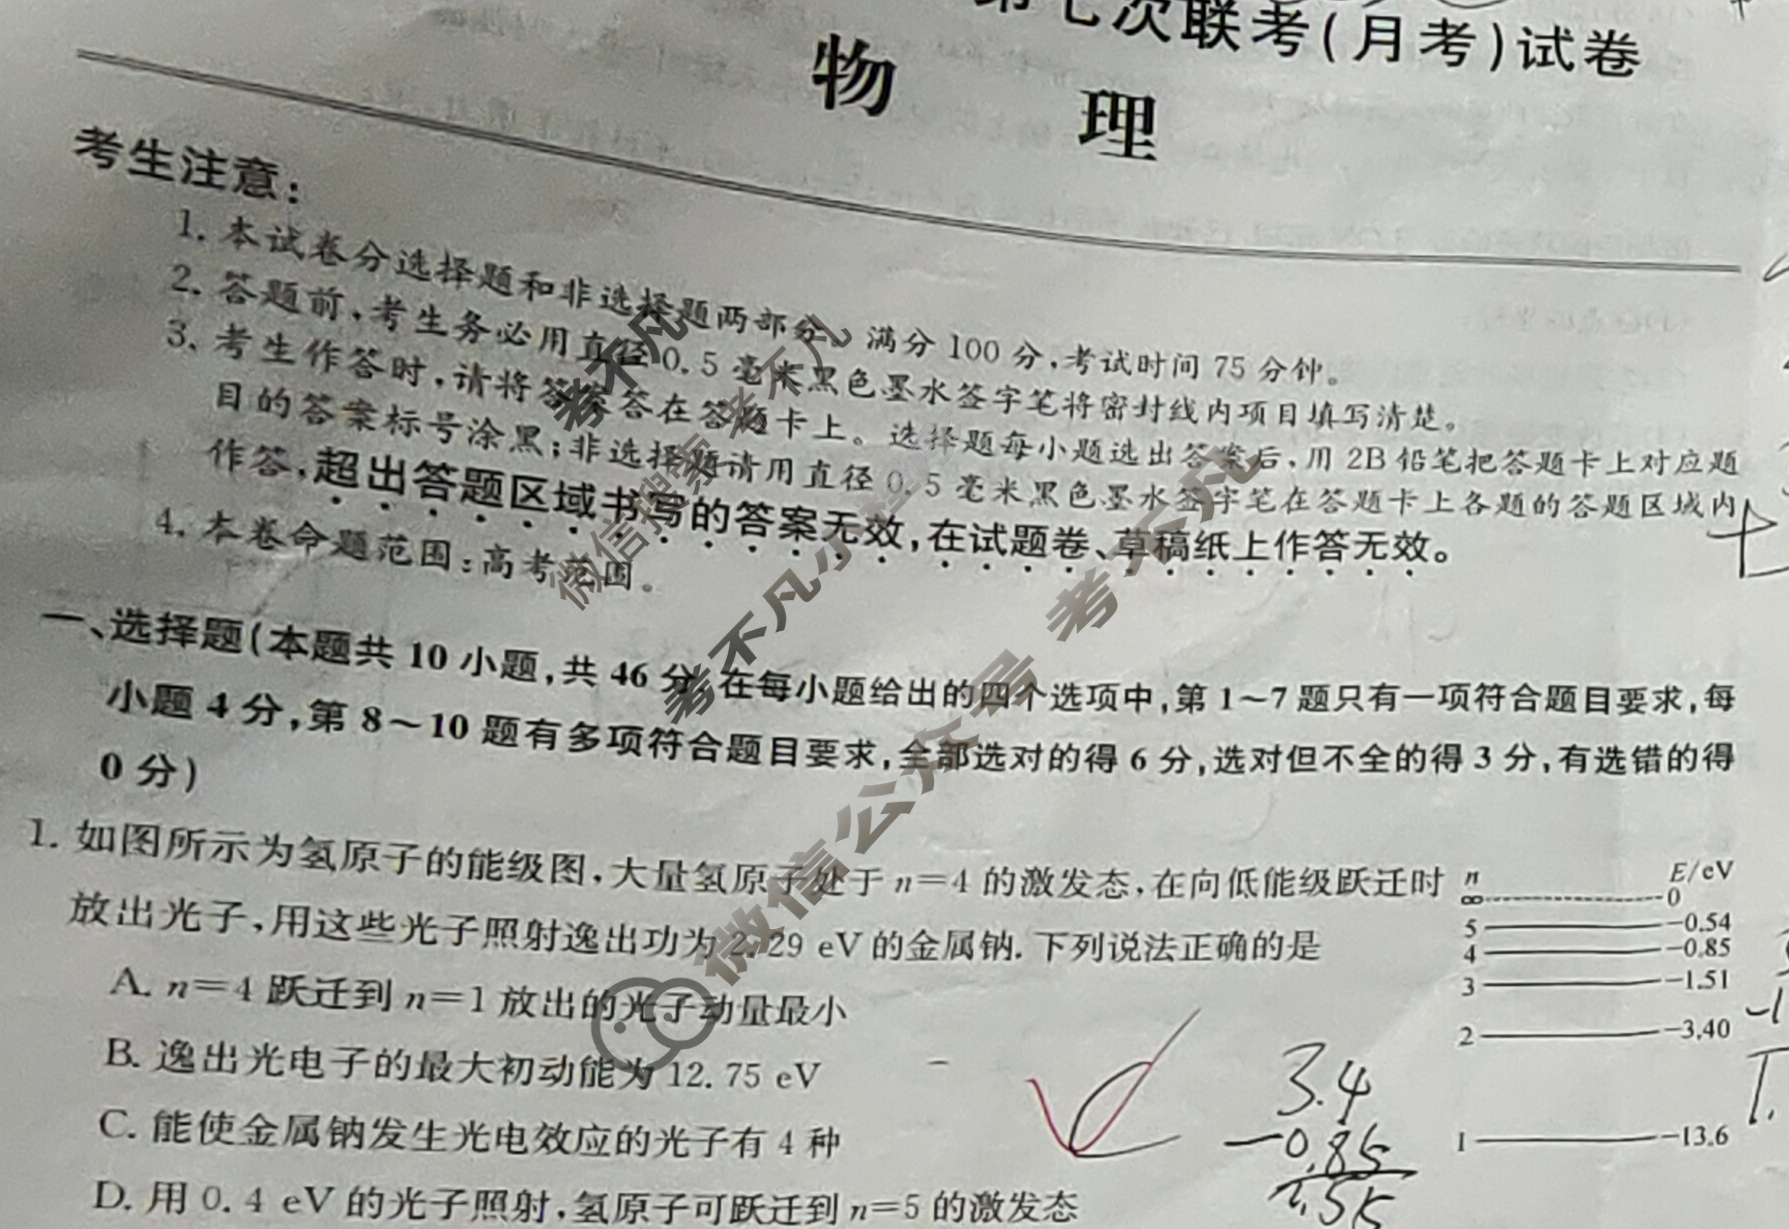 第七次联考(月考)试卷
物 理
考生注意:
1. 本试卷分选择题和非选择题两部分。满分 100 分,考试时间 75 分钟。
2. 答题前,考生务必用直径 0.5 毫米黑色墨水签字笔将密封线内项目填写清楚。
3. 考生作答时,请将答案答在答题卡上。选择题每小题选出答案后,用 2B 铅笔把答题卡上对应题
目的答案标号涂黑;非选择题请用直径 0.5 毫米黑色墨水签字笔在答题卡上各题的答题区域内
作答,超出答题区域书写的答案无效,在试题卷、草稿纸上作答无效。
4. 本卷命题范围:高考范围。
一、选择题(本题共 10 小题,共 46 分。在每小题给出的四个选项中,第 1~7 题只有一项符合题目要求,每
小题 4 分,第 8~10 题有多项符合题目要求,全部选对的得 6 分,选对但不全的得 3 分,有选错的得
0 分)
1. 如图所示为氢原子的能级图,大量氢原子处于 n=4 的激发态,在向低能级跃迁时
放出光子,用这些光子照射逸出功为 2.29 eV 的金属钠. 下列说法正确的是
A. n=4 跃迁到 n=1 放出的光子动量最小
B. 逸出光电子的最大初动能为 12.75 eV
C. 能使金属钠发生光电效应的光子有 4 种
D. 用 0.4 eV 的光子照射,氢原子可跃迁到 n=5 的激发态
n E/eV
∞ 0
5 -0.54
4 -0.85
3 -1.51
2 -3.40
1 -13.6
3.4
-0.85
2.55
考不凡
微信搜索考不凡
考不凡小
微信公众号 考不凡